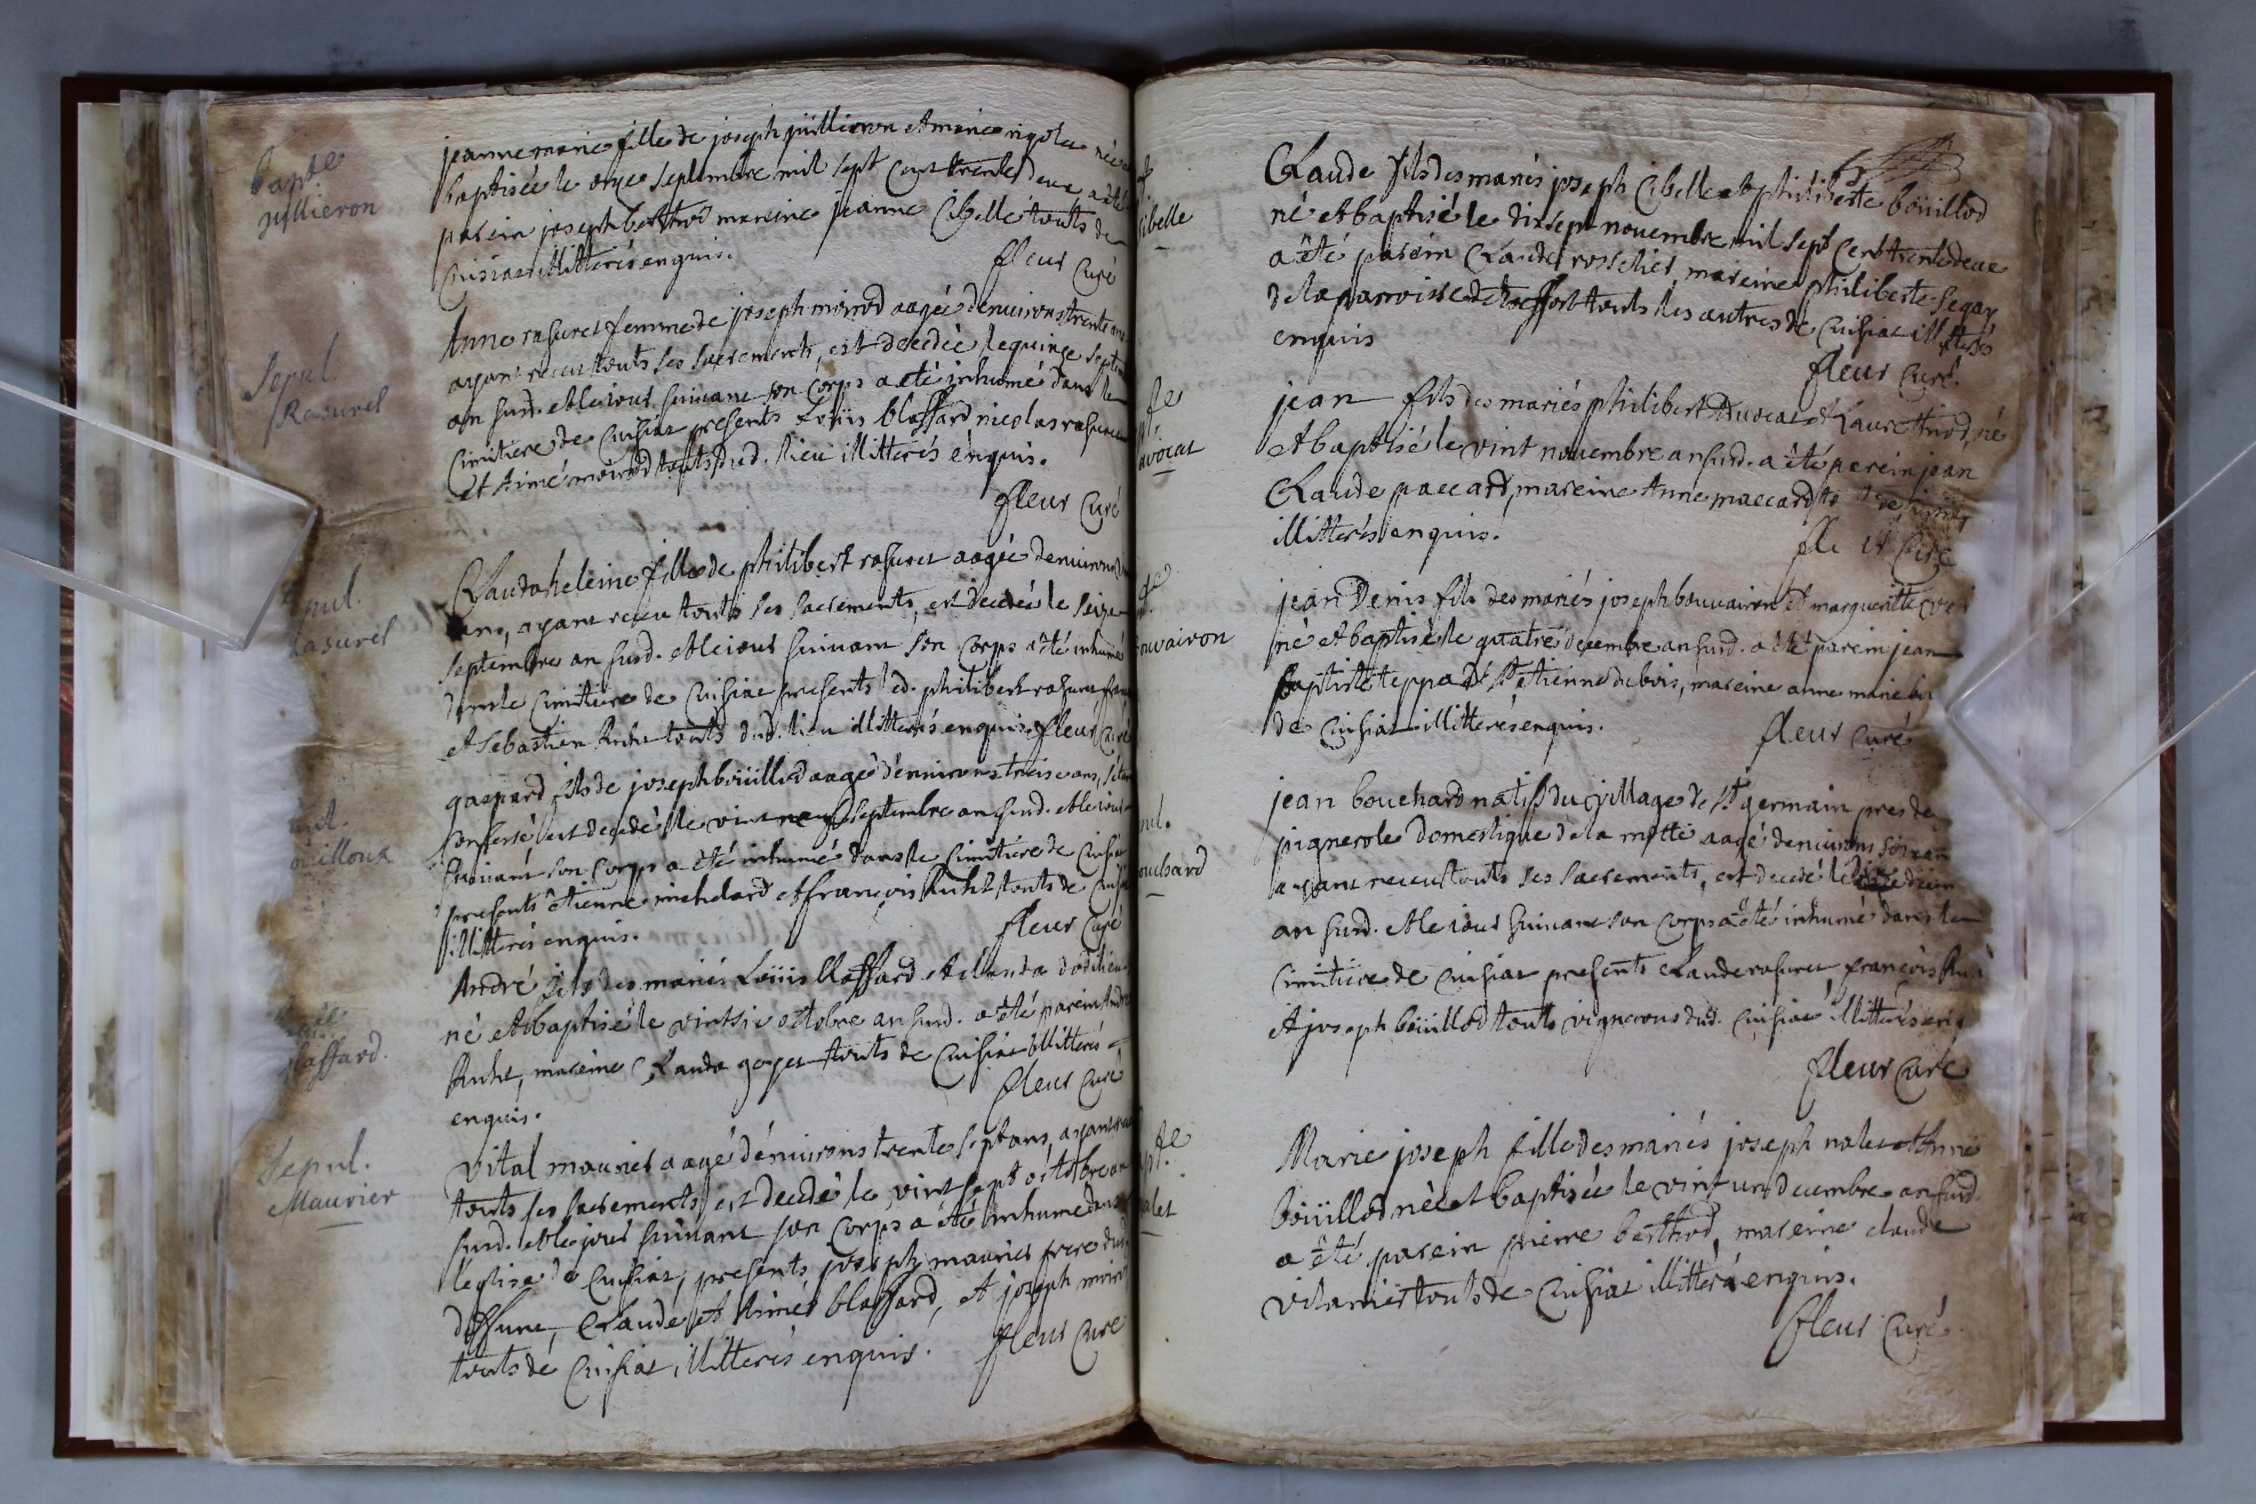 bapte
jullieron
jeanne marie fille de joseph jüillieron et marie rigolet née
baptisée le onze septembre mil sept cent trente deux a été
parein joseph berthod mareine jeanne Cibelle touts de
Cuisiat illitterés enquis.
fleur Curé
Sepul.
Rasurel
Anne rasurel femme de joseph moirod aagée denuirons trente ans
ayant receu touts ses sacrements, est decedée le quinze septem
an susd. et le iour suiuant son corps a eté inhumé dans le
Cimitiere de Cuisiat presents Loüis blaffard, nicolas rasurel
et Aimé moirod touts dud. lieu illitterés enquis.
fleur Curé
pul.
Rasurel
Claudaheleine fille de philibert rasurel aagée denuirons
ans, ayant receu touts ses sacrements, est decedée le seize
septembre an susd. et le iour suiuant son corps a été inhumé
dans le Cimitiere de Cuisiat presents led. philibert rasurel
et Sebastien touts dud. lieu illitterés enquis. fleur Curé
ouilloux
gaspard fils de joseph boüillod aagé d'enuirons treize ans, s'étant
confessé est decedé le vint neuf septembre an susd. et le iour
suiuant son corps a été inhumé dans le Cimitiere de Cuisiat
presents étienne michelard et françois touts de Cuisiat
illitterés enquis.
fleur Curé
blaffard.
André fils des mariés Loüis blaffard et Clauda dodilieu
né et baptisé le vint six octobre an susd. a été parein André
mareine Clauda goyet touts de Cuisiat illitterés
enquis.
fleur Curé
Sepul.
Maurier
Vital maurier aagé dénuirons trente sept ans, ayant receu
touts ses sacrements, est decedé le vint sept octobre an
susd. et le jour suiuant son corps a été inhumé dans
l'eglise de Cuisiat, presents joseph maurier frere dud.
deffunt, Claude et Aimé blaffard, et joseph moirod
touts de Cuisiat illitterés enquis.
fleur Curé
Cibelle
Claude fils des mariés joseph Cibelle et philiberte boüillod
né et baptisé le dixsept nouembre mil sept cent trente deux
a été parein Claude rosselier, mareine philiberte segay
de la parroisse de treffort touts les autres de Cuisiat illitterés
enquis
fleur Curé.
avocat
jean fils des mariés philibert Auocat et Laure thiod, né
et baptisé le vint nouembre an susd. a été parein jean
Claude paccard, mareine Anne maccard de Cuisiat
illitterés enquis.
fleur Curé
ouvairon
jean Denis fils des mariés joseph bouvairon et margueritte
né et baptisé le quatre decembre an susd. a été parein jean
Baptiste teppa de St etienne du bois, mareine anne marie
de Cuisiat illitterés enquis.
fleur Curé
ul.
ouchard
jean bouchard natif du village de St germain pres de
pignerole domestique de la motte aagé denuirons
ayant receu touts ses sacrements, est decedé le decem
an susd. et le iour suiuant son corps a été inhumé dans le
Cimitiere de Cuisiat presents Claude rasurel françois
et joseph boüillod touts vignerons dud. Cuisiat illitterés enq
fleur Curé
pte
alet
Marie joseph fille des mariés joseph nalet et Anne
boüillod née et baptisée le vint un decembre an susd.
a été parein pierre berthod, mareine claude
vitamier touts de Cuisiat illitterés enquis.
fleur Curé